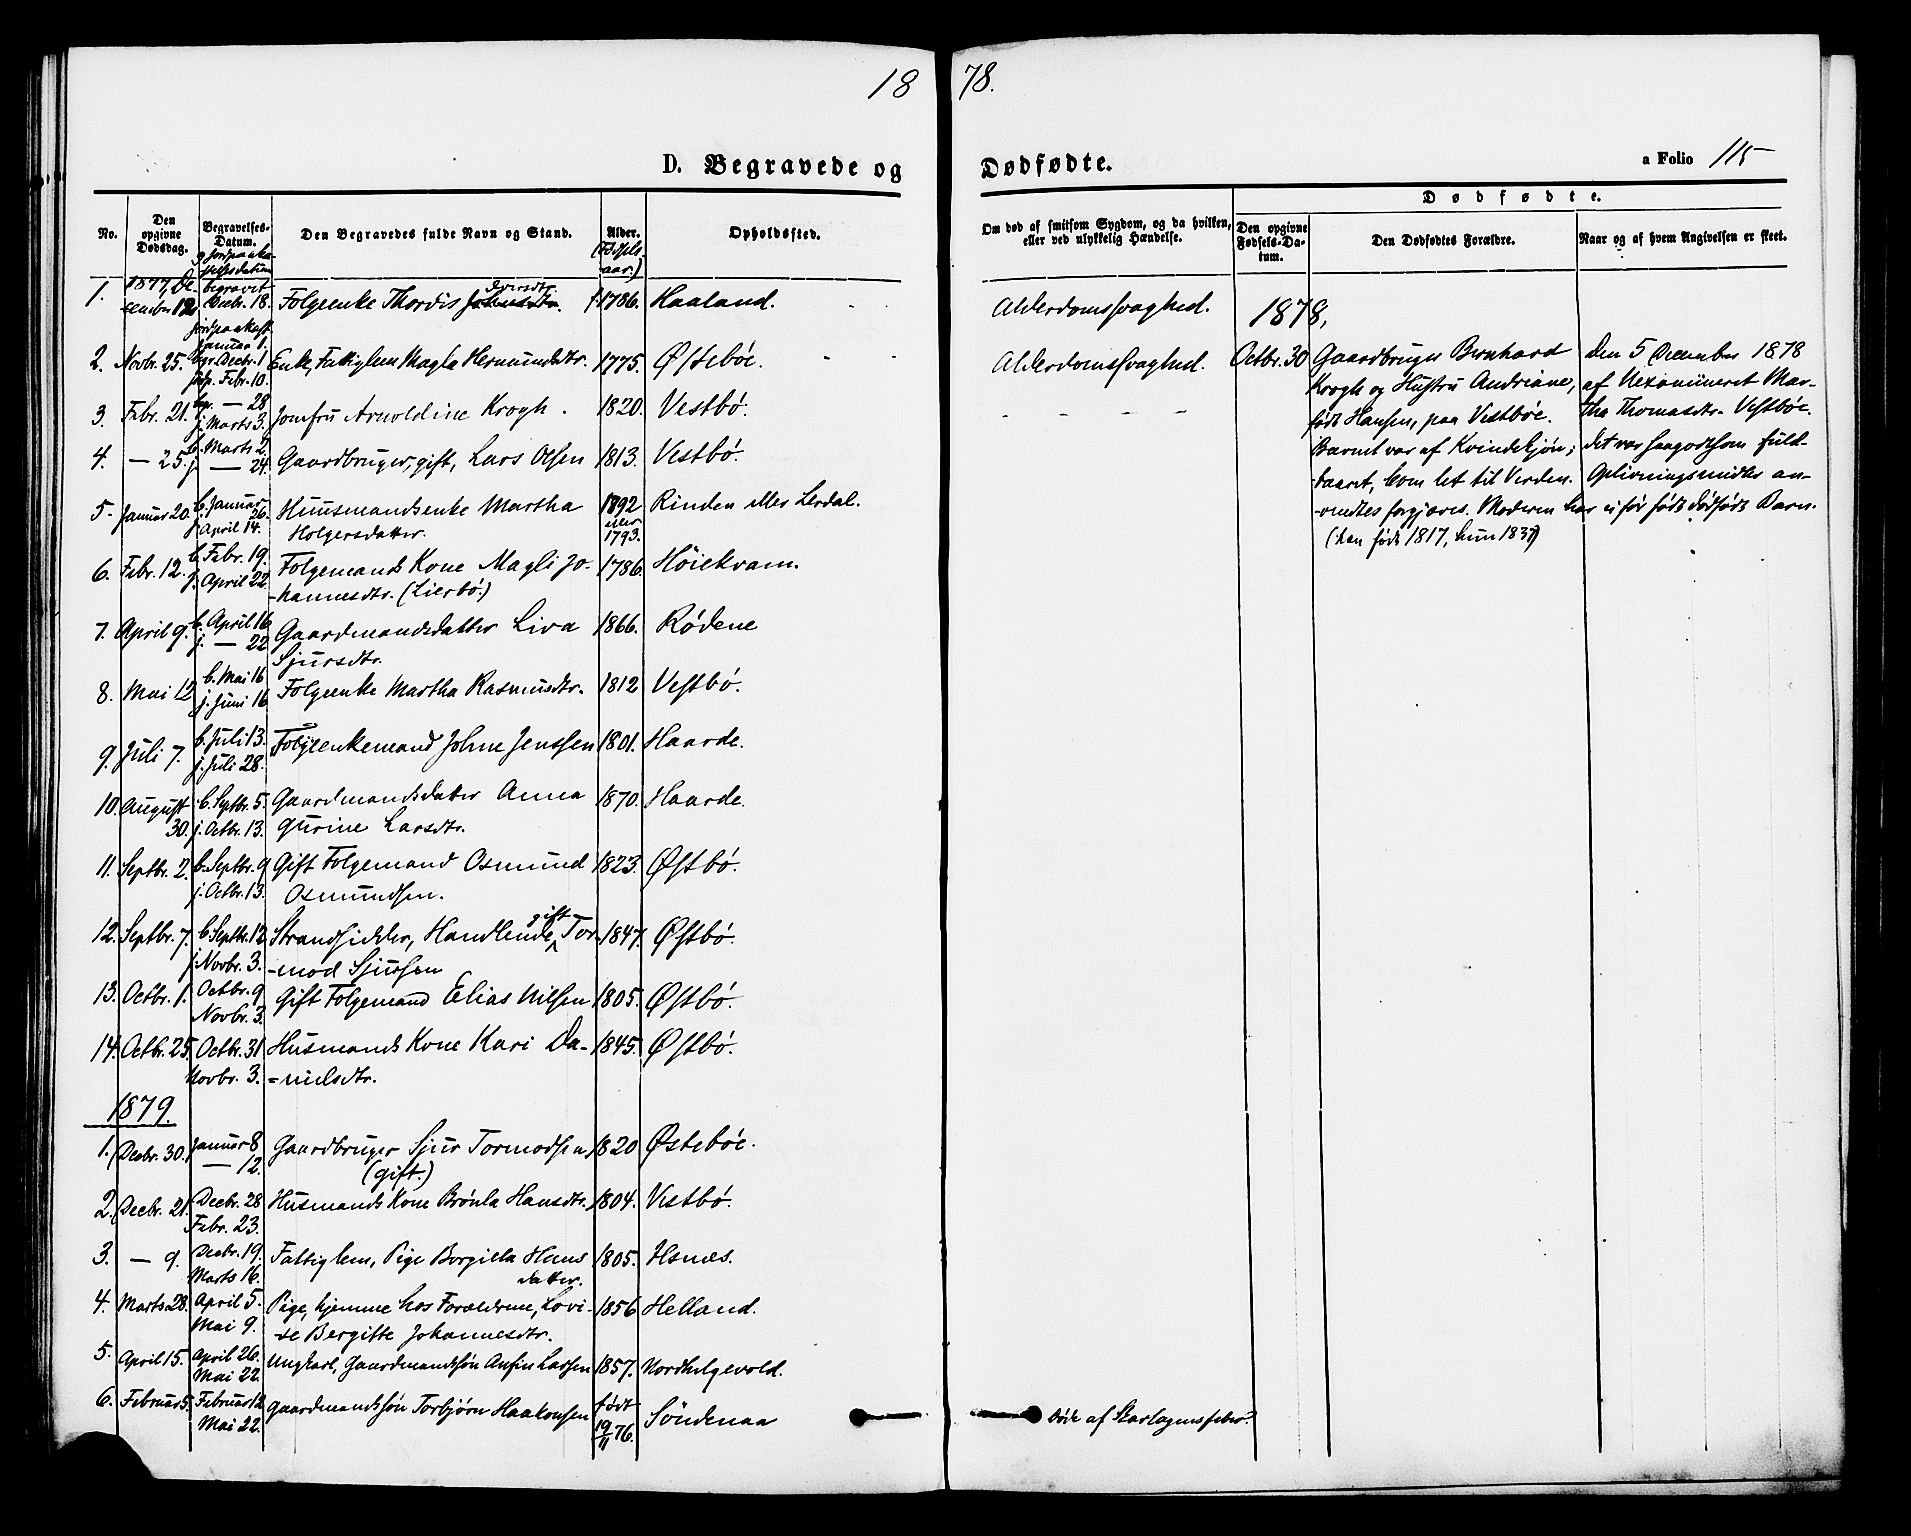 18 78.
D. Begravede og Dødfødte. a Folio 115
No.
Den opgivne Dødsdag.
Begravelses-Datum.
Den Begravedes fulde Navn og Stand.
Alder.
(Fødselsaar.)
Opholdssted.
Om død af smitsom Sygdom, og da hvilken, eller ved ulykkelig Hændelse.
Dødfødte.
Den opgivne Fødsels-Datum.
Den Dødfødtes Forældre.
Naar og af hvem Angivelsen er skeet.
1. 1877, December 12 begravet Decbr. 18. Folgeenke Thordis Iversdtr. 1786. Haaland. Alderdomssvaghed.
Jordpaakast Januar 1.
2. Novbr. 25. bgr. Decbr. 1 Enke, Fattiglem Magla Hermundsdtr. 1775. Østebøe. Alderdomssvaghed.
Febr. 10.
3. Febr. 21. — 28 Jomfru Arnoldine Krogh. 1820. Vestbø.
j. Marts 3.
4. — 25. b. Marts 2 Gaardbruger, gift, Lars Olsen 1813. Vestbø.
j. — 24.
5. Januar 20. b. Januar 26. Huusmandsenke Martha 1892 Rinden eller Lerdal.
j. April 14. Holgersdatter. eller 1793.
6. Febr. 12. b. Febr. 19. Folgemands Kone Magli Jo- 1786. Høiekvam.
j. April 22. -hannesdtr. (Lierbø.)
7. April 9. b. April 16 Gaardmandsdatter Liva 1866. Rødene
j. — 22 Sjursdtr.
8. Mai 12 b. Mai 16 Folgeenke Martha Rasmusdtr. 1812 Vestbø.
j. Juni 16
9. Juli 7. b. Juli 13. Folgeenkemand Johne Jenssen 1801. Haarde.
j. Juli 28.
10. August b. Septbr. 5. Gaardmandsdatter Anna 1870. Haarde.
30. j. Octbr. 13. Gurine Larsdtr.
11. Septbr. 2. b. Septbr. 9 Gift Folgemand Osmund 1823. Østbø.
j. Octbr. 13. Osmundsen.
12. Septbr. 7. b. Septbr. 12 Strandsidder, Handlende, gift Tor- 1847. Østbø.
j. Novbr. 3. -mod Sjursen
13. Octbr. 1. Octbr. 9 Gift Folgemand Elias Nilsen 1805. Østbø.
Novbr. 3.
14. Octbr. 25. Octbr. 31 Husmands Kone Kari Da- 1845. Østbø.
Novbr. 3. -nielsdtr.
1879.
1. (Decbr. 30.) Januar 8 Gaardbruger Sjur Tormodsen 1820 Østebøe.
— 12. (gift.)
2. (Decbr. 21. Decbr. 28 Husmands Kone Brønla Hansdtr. 1804. Vestbø.
Febr. 23.
3. — 9. Decbr. 19. Fattiglem, Pige Borgilla Hans 1805. Hsnæs.
Marts 16. datter.
4. Marts 28. April 5. Pige, hjemme hos Forældrene, Lovi- 1856 Helland.
Mai 9. -se Bergitte Johannesdtr.
5. April 15. April 26. Ungkarl, Gaardmandssøn Anfin Larsen 1857. Nordhelgevold.
Mai 22.
6. Februar 5. Februar 12 Gaardmandssøn Torbjørn Haakonsen født Søndenaa Døde af Skarlagensfeber.
Mai 22. 19/11 76.
1878,
Octbr. 30
Gaardbruger Bernhard
Krogh og Hustru Andriane,
født Hansen, paa Vestbøe.
Barnet var af Kvindekjøn; det var saagodtsom fuld-
-baaret, kom let til Verden. Oplivningsmidler an-
-vendtes forgjæves. Moderen har ei før født dødfødt Barn.
(han født 1817, hun 1837)
Den 5 December 1878
af Uexamineret Mar-
tha Thomasdtr. Vestbøe.